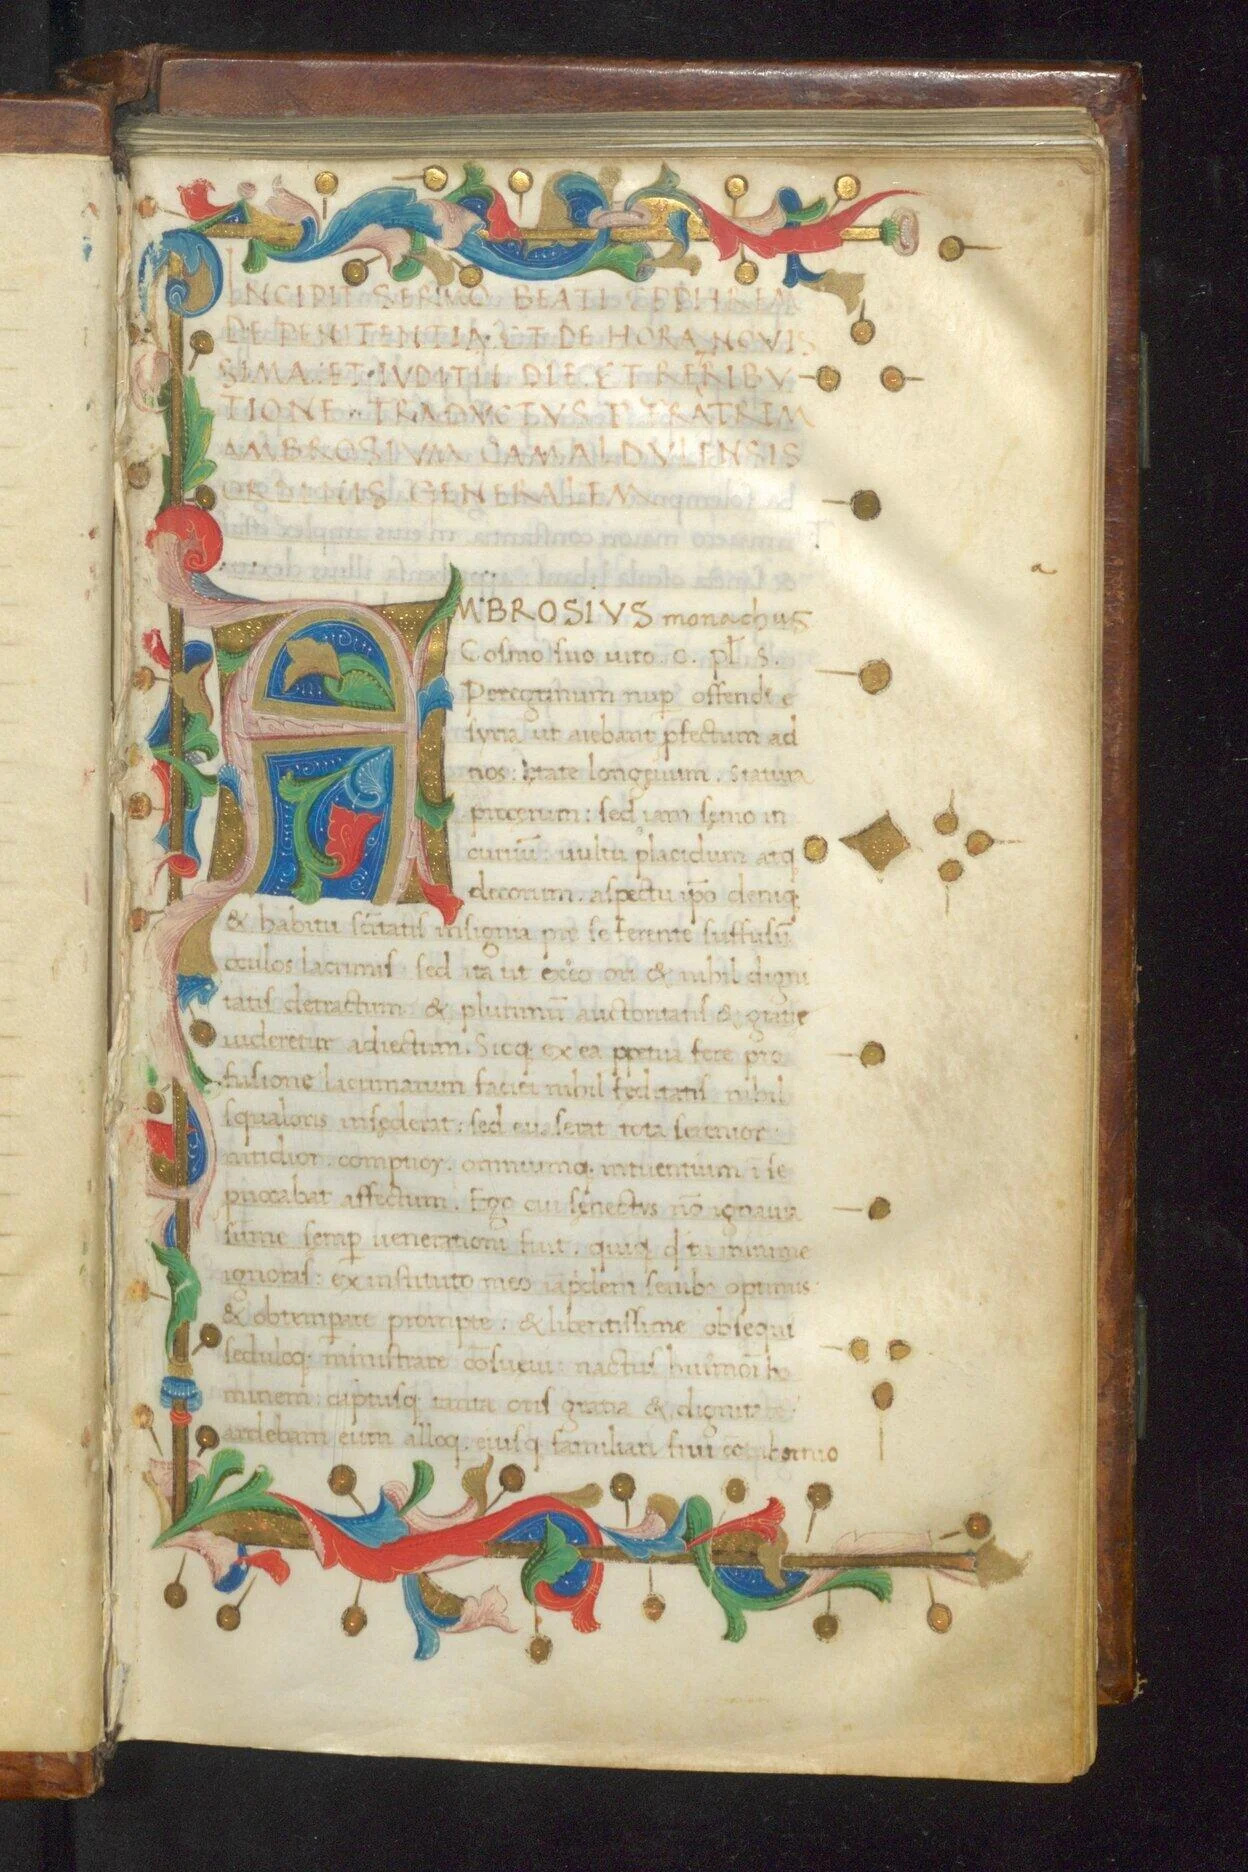 INCIPIT SERMO BEATI EPHREM
DE PENITENTIA. ET DE HORA NOVIS
SIMA. ET IVDITII DIE. ET RETRIBV
TIONE. TRADVCTVS P FRATREM
AMBROSIVM CAMALDVLENSIS
ORDINIS GENERALEM
AMBROSIVS monachus
Cosmo suo uiro. c. pl̄. S.
Peregrinum nup̄ offendi e
syria ut aiebant pfectum ad
nos: ętate longęuum. statura
procerum: sed iam senio in
curuū: uultu placidum atq
decorum. aspectu ip̄o deniq
& habitu scītatis insignia pre se ferente suffusū
oculos lacrimis. sed ita ut ex eo ori & nihil digni
tatis detractum & plurimū auctoritatis & gratię
uideretur adiectum. Sicq ex ea ppetua fere pro
fusione lacrimarum faciei nihil fęditatis nihil
squaloris insęderat: sed euaserat tota serenior
nitidior. omniumq intuentium ī se
prouocabat affectum. Ego cui senectus nō ignaua
summe semp̄ uenerationi fuit. quiq qd tu minime
ignoras: ex instituto meo iāpdem senibus optimis
& obtemperare prompte. & libentissime obsequi
seduloq ministrare cōsueui: nactus huiusmōi ho
minem: captusq tanta oris gratia & dignitate
ardebam eum alloq. eiusq familiari frui
a